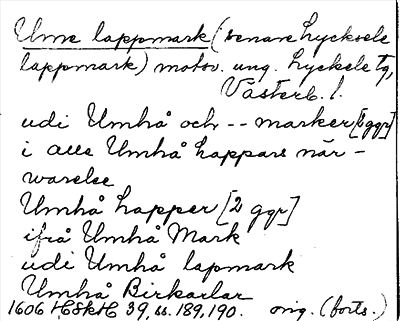 Ume lappmark (senare Lycksele
lappmark) motsv. ung. Lycksele tg,
Västerb. l.
udi Umhå och -- marker [2 ggr]
i alle Umhå Lappars när-
warelse
Umhå Lapper [2 ggr]
ifrå Umhå Mark
udi Umhå lapmark
Umhå Birkarlar
1606 HSkH 39, ss. 189, 190. orig. (forts.)